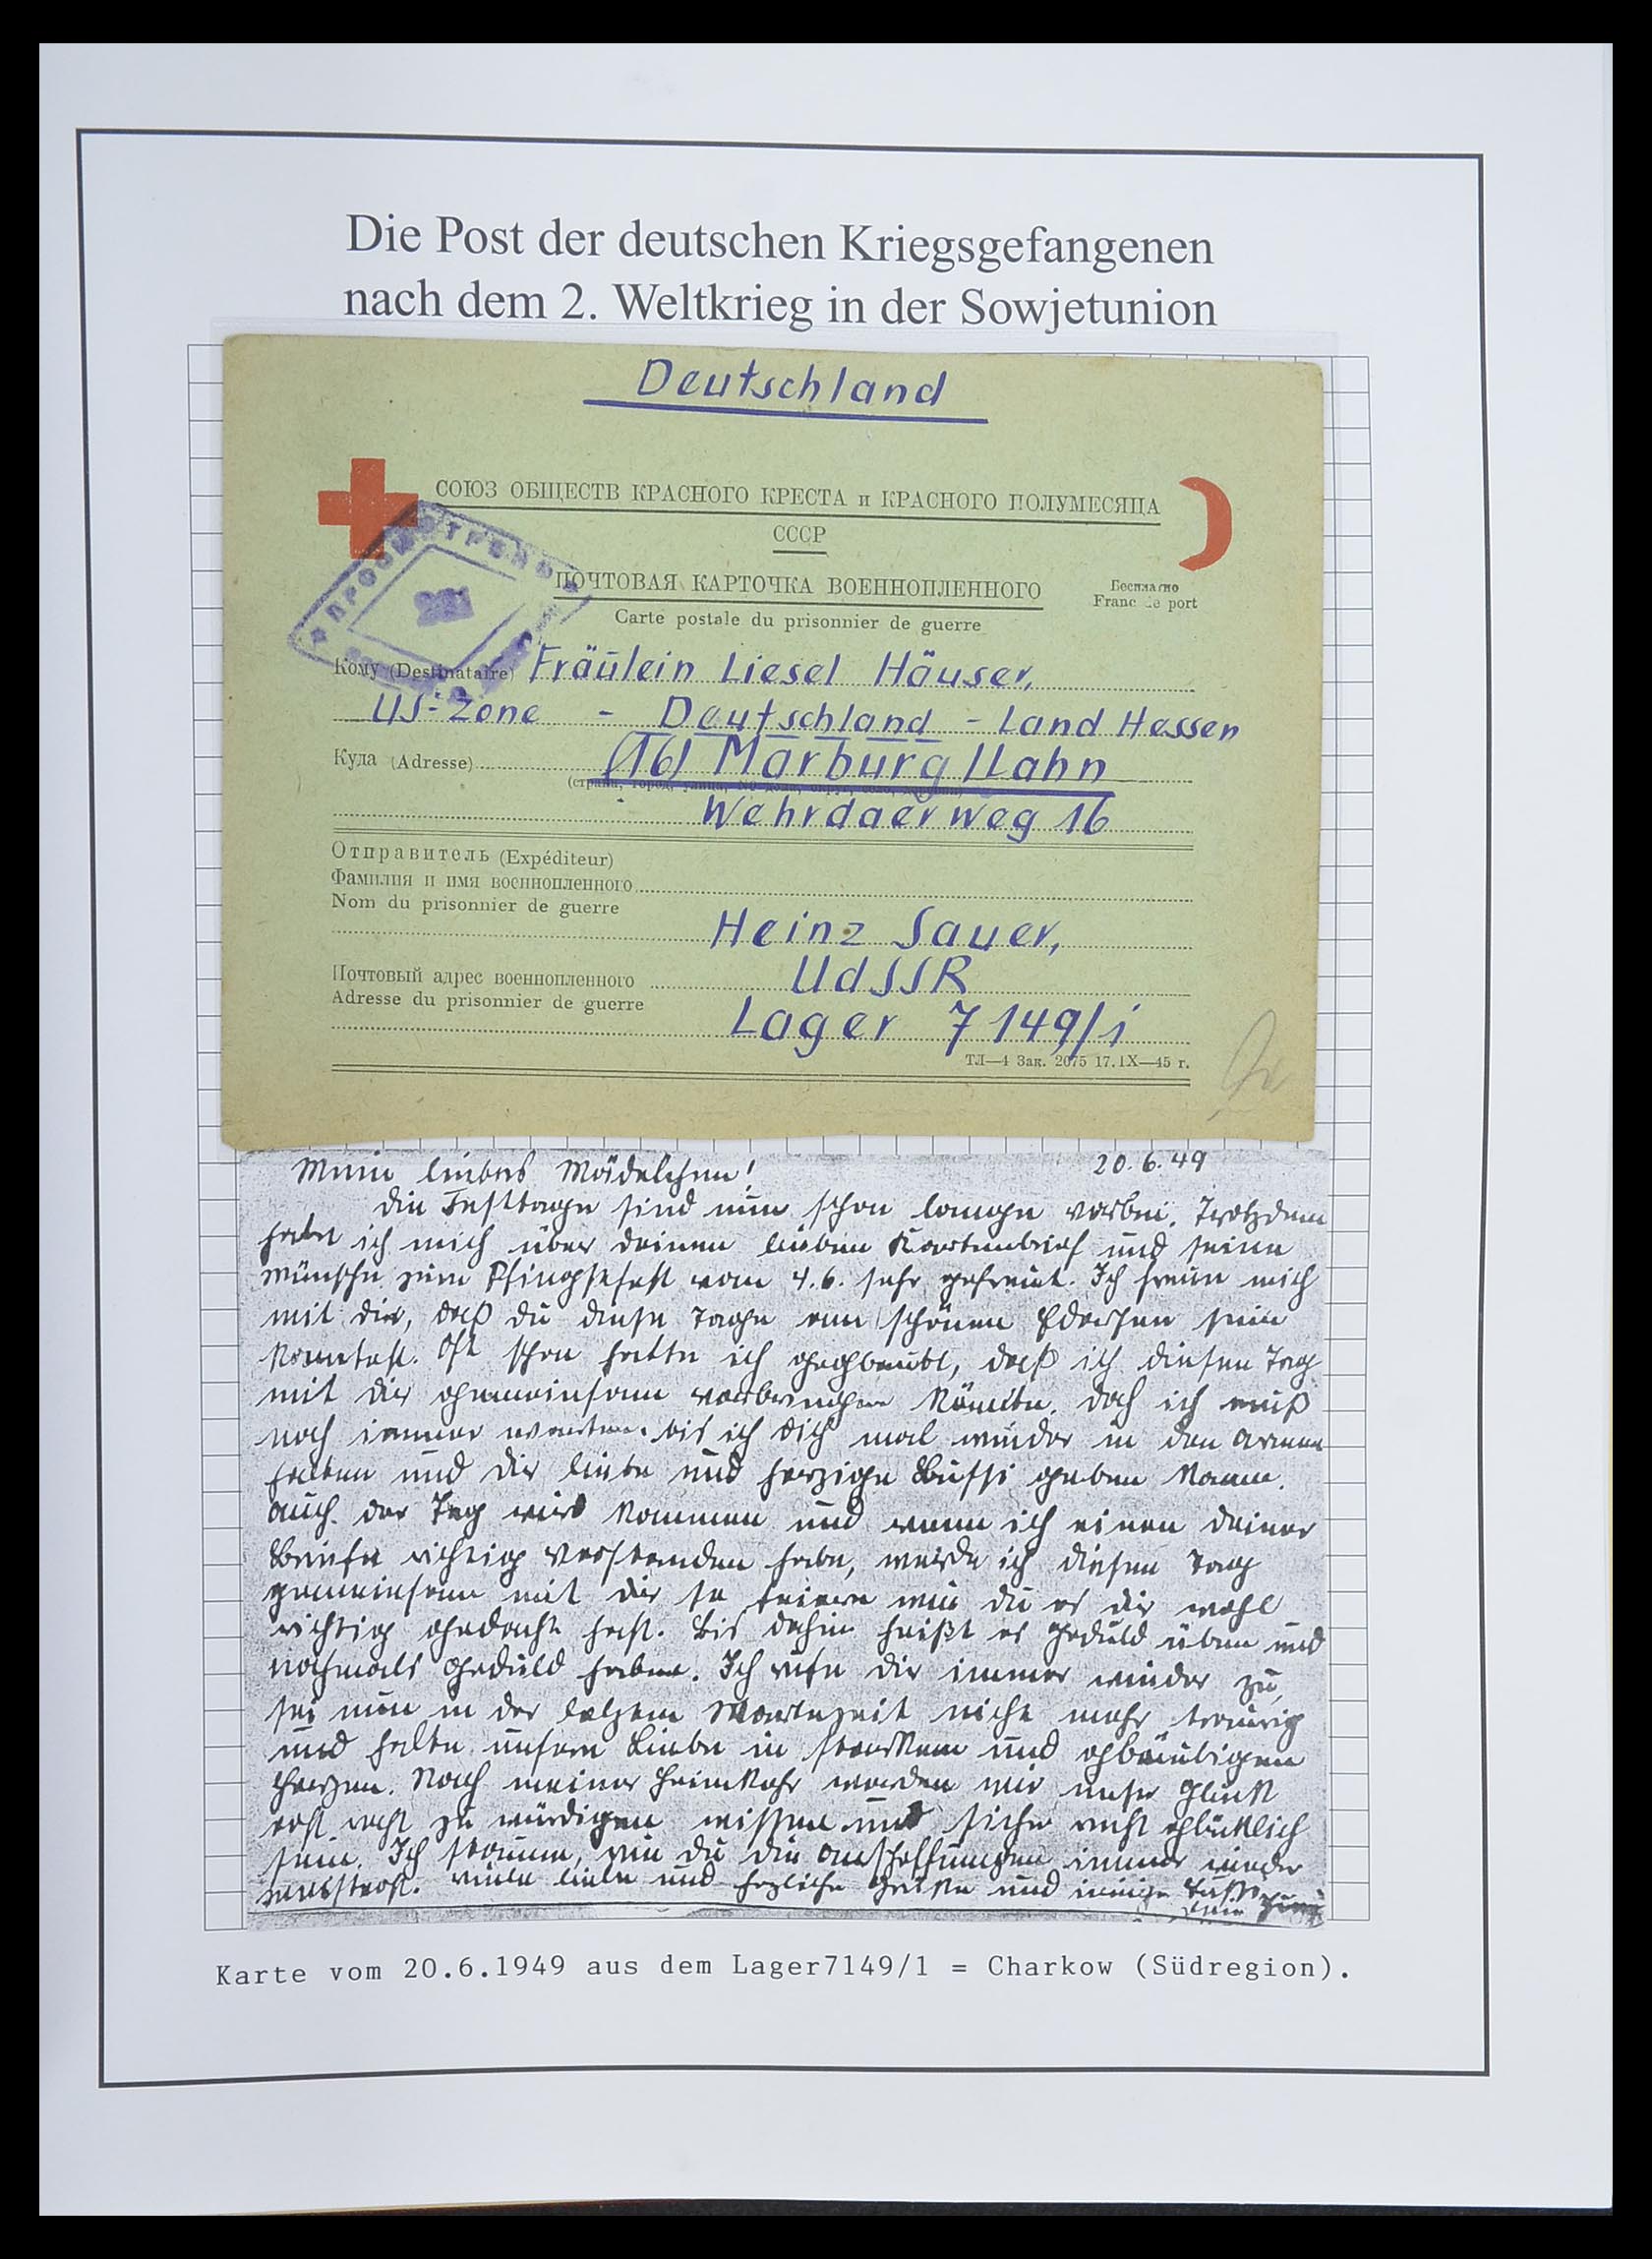 Die Post der deutschen Kriegsgefangenen
nach dem 2. Weltkrieg in der Sowjetunion
Deutschland
СОЮЗ ОБЩЕСТВ КРАСНОГО КРЕСТА и КРАСНОГО ПОЛУМЕСЯЦА
СССР
ПОЧТОВАЯ КАРТОЧКА ВОЕННОПЛЕННОГО
Бесплатно
Carte postale du prisonnier de guerre
Franc de port
ПРОСМОТРЕНО
Кому (Destinataire) Fräulein Liesel Häuser,
US-Zone - Deutschland - Land Hessen
Куда (Adresse) (16) Marburg/Lahn
Wehrdaerweg 16
Отправитель (Expéditeur)
Фамилия и имя военнопленного
Nom du prisonnier de guerre
Heinz Sauer,
Почтовый адрес военнопленного UdSSR
Adresse du prisonnier de guerre
Lager 7149/1
ТЛ—4 Зак. 2075 17.IX—45 г.
Mein liebes Mädelchen! 20.6.49
Die Festtage sind nun schon lange vorbei. Trotzdem
habe ich mich über deinen lieben Kartenbrief und seine
Wünsche zum Pfingstfest vom 4.6. sehr gefreut. Ich freue mich
mit dir, daß du diese Tage am schönen Edersee sein
konntest. Oft schon hatte ich geglaubt, daß ich diesen Tag
mit dir gemeinsam verbringen könnte, doch ich muß
noch immer warten, bis ich dich mal wieder in den Armen
halten und dir liebe und herzige Bussi geben kann.
Auch der Tag wird kommen und wenn ich einen deiner
Briefe richtig verstanden habe, werde ich diesen Tag
gemeinsam mit dir so feiern wie du es dir wohl
richtig gedacht hast. Bis dahin heißt es Geduld üben und
nochmals Geduld haben. Ich rufe dir immer wieder zu,
sei nun in der letzten Wartezeit nicht mehr traurig
und halte unsere Liebe in starkem und gläubigem
Herzen. Nach meiner Heimkehr werden wir unser Glück
erst recht zu würdigen wissen und sicher recht glücklich
sein. Ich staune, wie du die Anschaffungen immer wieder
Viele liebe und herzliche Grüße und innige
Karte vom 20.6.1949 aus dem Lager7149/1 = Charkow (Südregion).